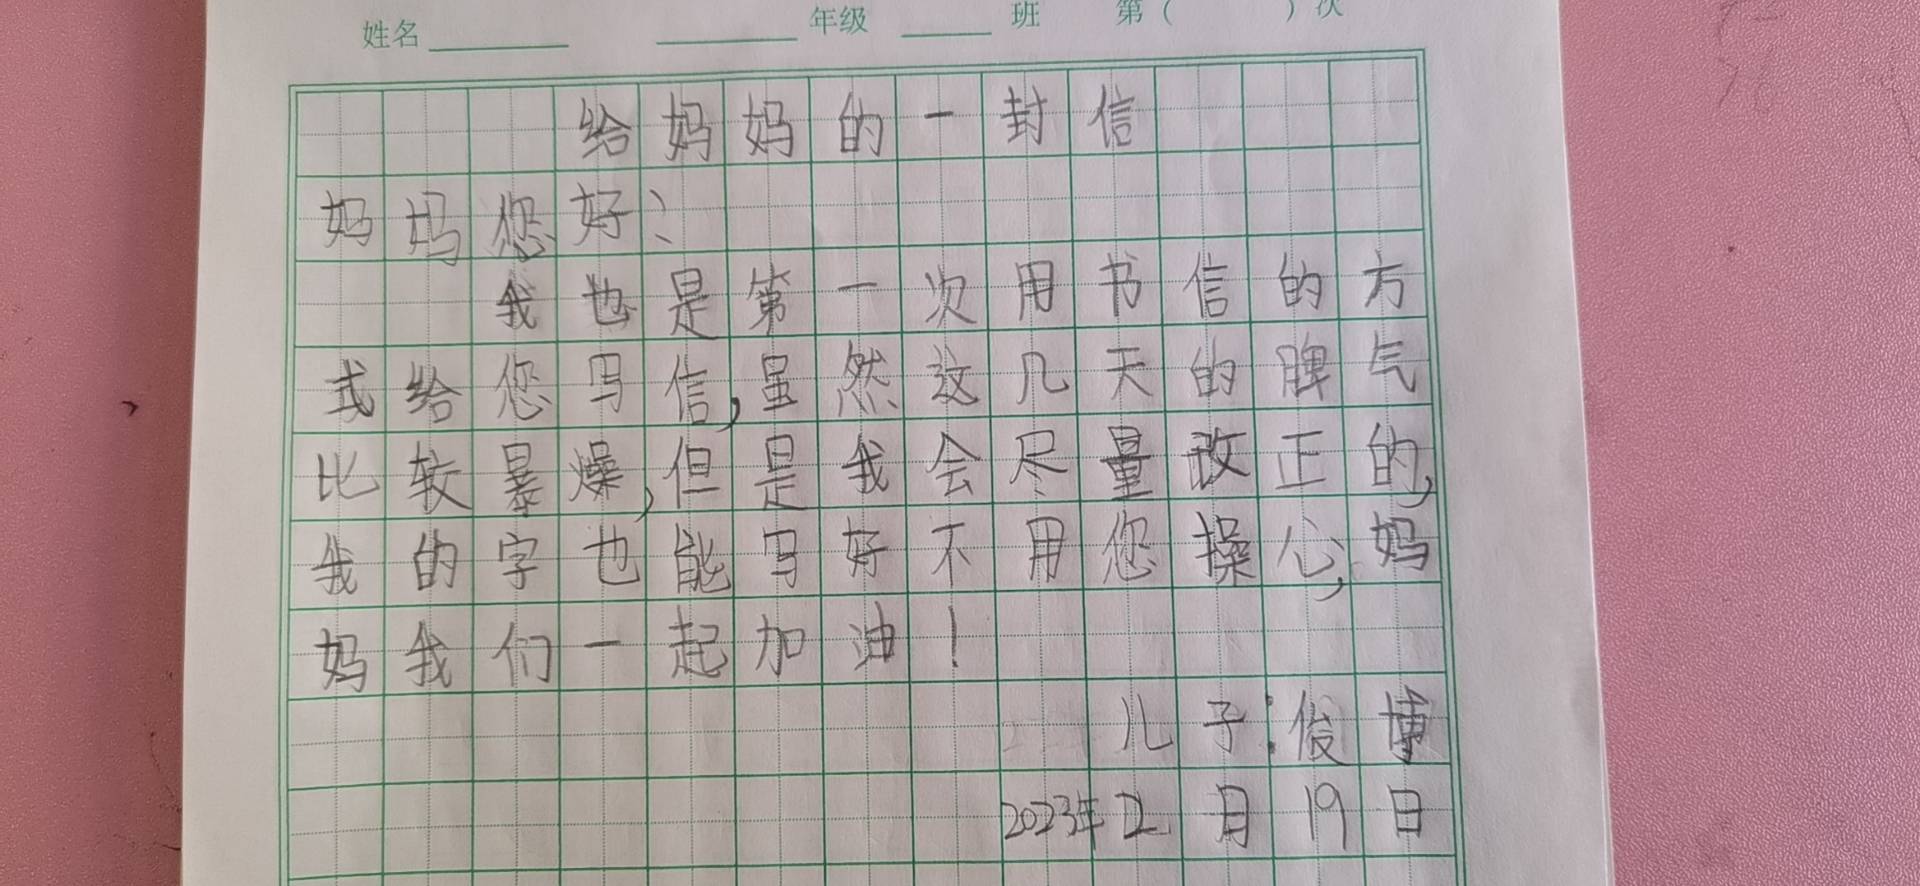 姓名 年级 班 第( )次
给妈妈的一封信
妈妈您好：
我也是第一次用书信的方
式给您写信,虽然这几天的脾气
比较暴燥,但是我会尽量改正的,
我的字也能写好不用您操心,妈
妈我们一起加油！
儿子:俊博
2023年12月19日